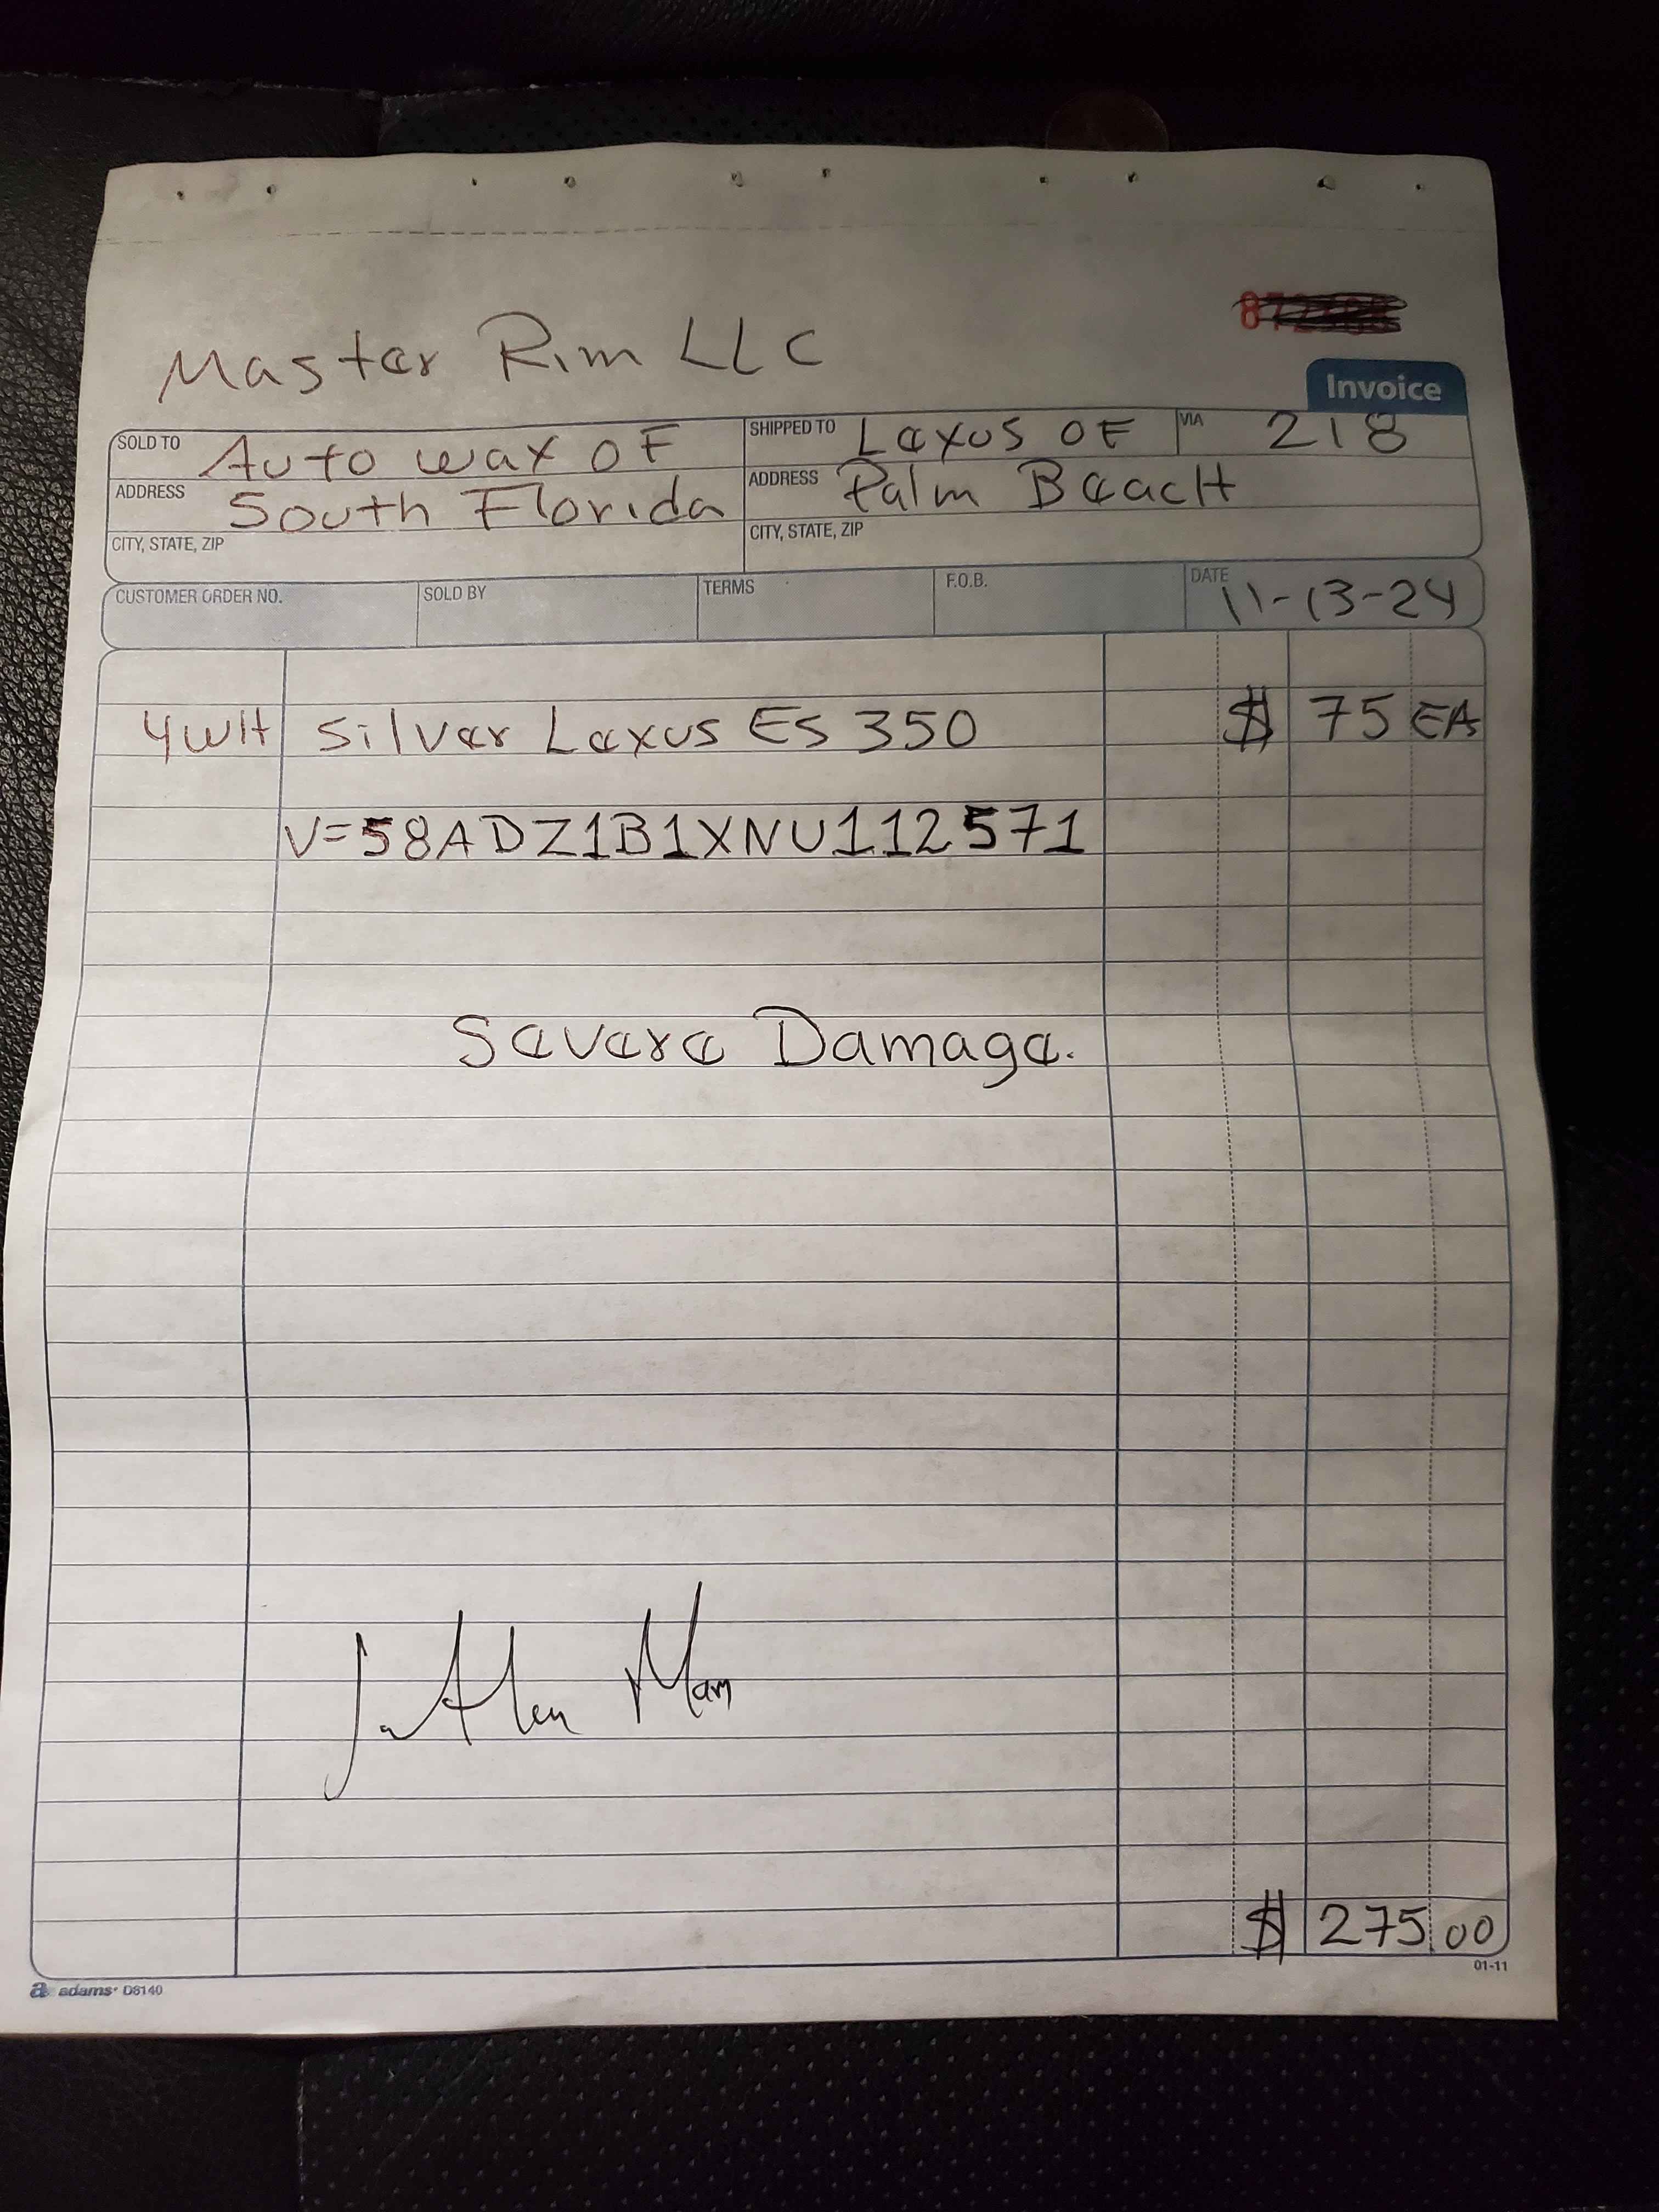 Master Rim LLC
Invoice
SOLD TO Auto wax OF
SHIPPED TO Lexus OF VIA 218
ADDRESS South Florida
ADDRESS Palm BeacH
CITY, STATE, ZIP
CITY, STATE, ZIP
CUSTOMER ORDER NO. SOLD BY TERMS F.O.B. DATE 11-13-24
4WH Silver Lexus ES 350 $ 75 EA
V=58ADZ1B1XNU112571
Severe Damage.
$ 275.00
a adams® D8140
01-11